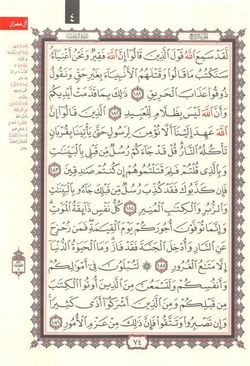 آل عمران
٤
لَقَدْ سَمِعَ اللَّهُ قَوْلَ الَّذِينَ قَالُوا إِنَّ اللَّهَ فَقِيرٌ وَنَحْنُ أَغْنِيَاءُ
سَنَكْتُبُ مَا قَالُوا وَقَتْلَهُمُ الْأَنْبِيَاءَ بِغَيْرِ حَقٍّ وَنَقُولُ
ذُوقُوا عَذَابَ الْحَرِيقِ ١٨١ ذَلِكَ بِمَا قَدَّمَتْ أَيْدِيكُمْ
وَأَنَّ اللَّهَ لَيْسَ بِظَلَّامٍ لِلْعَبِيدِ ١٨٢ الَّذِينَ قَالُوا إِنَّ
اللَّهَ عَهِدَ إِلَيْنَا أَلَّا نُؤْمِنَ لِرَسُولٍ حَتَّى يَأْتِيَنَا بِقُرْبَانٍ
تَأْكُلُهُ النَّارُ قُلْ قَدْ جَاءَكُمْ رُسُلٌ مِنْ قَبْلِي بِالْبَيِّنَاتِ
وَبِالَّذِي قُلْتُمْ فَلِمَ قَتَلْتُمُوهُمْ إِنْ كُنْتُمْ صَادِقِينَ ١٨٣
فَإِنْ كَذَّبُوكَ فَقَدْ كُذِّبَ رُسُلٌ مِنْ قَبْلِكَ جَاءُوا بِالْبَيِّنَاتِ
وَالزُّبُرِ وَالْكِتَابِ الْمُنِيرِ ١٨٤ كُلُّ نَفْسٍ ذَائِقَةُ الْمَوْتِ
وَإِنَّمَا تُوَفَّوْنَ أُجُورَكُمْ يَوْمَ الْقِيَامَةِ فَمَنْ زُحْزِحَ
عَنِ النَّارِ وَأُدْخِلَ الْجَنَّةَ فَقَدْ فَازَ وَمَا الْحَيَاةُ الدُّنْيَا
إِلَّا مَتَاعُ الْغُرُورِ ١٨٥ لَتُبْلَوُنَّ فِي أَمْوَالِكُمْ
وَأَنْفُسِكُمْ وَلَتَسْمَعُنَّ مِنَ الَّذِينَ أُوتُوا الْكِتَابَ
مِنْ قَبْلِكُمْ وَمِنَ الَّذِينَ أَشْرَكُوا أَذًى كَثِيرًا
وَإِنْ تَصْبِرُوا وَتَتَّقُوا فَإِنَّ ذَلِكَ مِنْ عَزْمِ الْأُمُورِ ١٨٦
٧٤